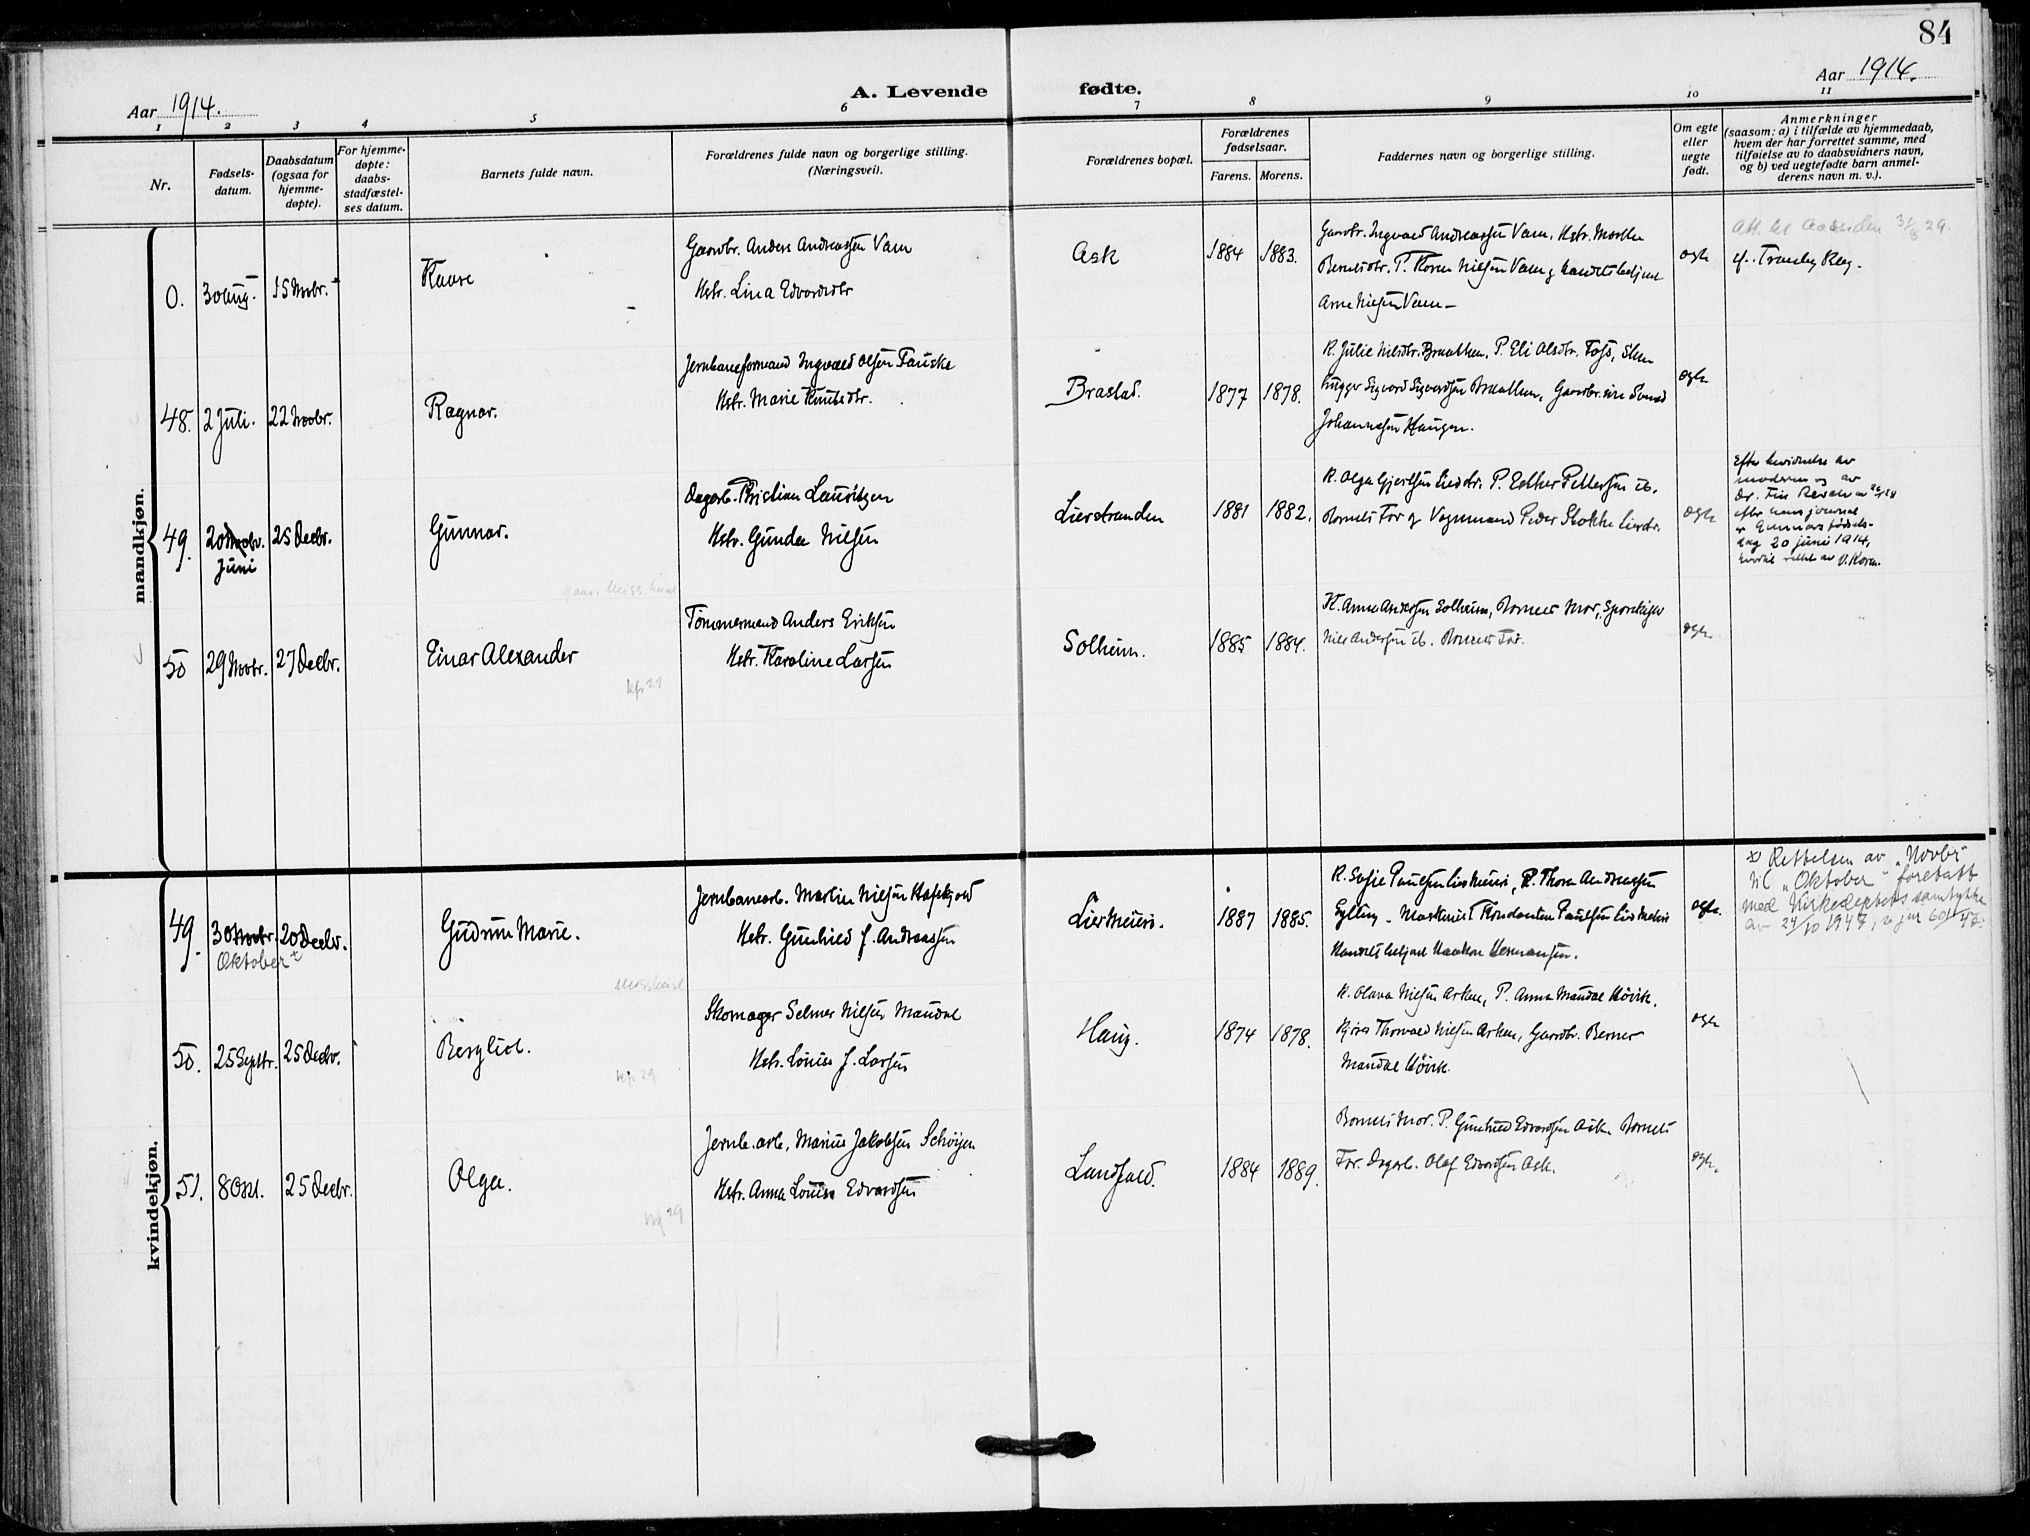 84
Aar 1914.
A. Levende fødte.
Aar 1914.
1 2 3 4 5 6 7 8 9 10 11
Nr.
Fødsels-
datum.
Daabsdatum
(ogsaa for
hjemme-
døpte).
For hjemme-
døpte:
daabs-
stadfæstel-
ses datum.
Barnets fulde navn.
Forældrenes fulde navn og borgerlige stilling.
(Næringsvei).
Forældrenes bopæl.
Forældrenes
fødselsaar.
Farens. Morens.
Faddernes navn og borgerlige stilling.
Om egte
eller
uegte
født.
Anmerkninger
(saasom: a) i tilfælde av hjemmedaab,
hvem der har forrettet samme, med
tilføielse av to daabsvidners navn,
og b) ved uegtefødte barn anmel-
derens navn m. v.).
mandkjøn.
0. 30 Aug. 15 Novbr. Kaare
Gaardbr. Anders Andreassen Vam
Hstr. Lina Edvardsdtr
Ask 1884 1883.
Gaardbr. Ingvald Andreassen Vam, Hstr. Marthe
Arne Nielsen Vam
egte
cf. Tranby Reg.
48. 2 Juli. 22 Novbr. Ragnar.
Jernbaneformand Ingvald Olsen Fauske
Hstr. Marie Knutsdtr.
Brastad. 1877 1878.
K. Julie Nilsdtr. Braathen, P. Eli Olsdtr. Foss, Sten
hugger Sigvard Sigvardsen Braathen, Gaardbr.
Johannesen Haugen.
egte
49. 20 Novbr. 25 Decbr. Gunnar.
Juni
Dagarb. Kristian Lauritzen
Hstr. Gunda Nilsen
Lierstranden 1881 1882.
K. Olga Gjertsen Lierstr. P. Esther Pettersen ib.
Barnets Far og Vognmand Peder Stokke Lierstr.
egte
Efter bevidnelse av
moderen og av
efter hans journal
er Gunnars fødsels-
dag 20 juni 1914,
rettet av V. Koren.
50 29 Novbr. 27 Decbr. Einar Alexander
Tømmermand Anders Eriksen
Hstr. Karoline Larsen
Solheim. 1885 1884.
K. Anna Andersen Solheim, Barnets Mor,
Nils Andersen ib. Barnets Far.
egte.
kvindekjøn.
49. 30 Novbr. 20 Decbr. Gudrun Marie.
Oktober x
Jernbanearb. Martin Nilsen Hafskjold
Hstr. Gunhild f. Andreassen
Liermeieri. 1887 1885.
K. Sofie Paulsen Liermeieri, P. Thora Andreassen
Gylling. Maskinist Paulsen Liermeieri
Handelsbetjent Haakon Hermansen.
egte.
x) Rettelsen av "Novbr"
til "Oktober" foretatt
med Kirkedeptets samtykke
av 24/10 1947,
50. 25 Septbr. 25 Decbr. Bergliot.
Skomager Selmer Nilsen Maudal
Hstr. Louise f. Larsen
Haug. 1874 1878.
K. Olava Nilsen Asken, P. Anna Maudal Høvik.
Thorvald Nilsen Asken, Gaardbr. Berner
Maudal Høvik.
egte
51. 8 Okt. 25 Decbr. Olga.
Jernb.arb. Marius Jakobsen Schøyen
Hstr. Anna Louise Edvardsen
Landfald. 1884 1889.
Barnets Mor. P. Gunhild Edvardsen Ask. Barnets
Far. Dagarb. Olaf Edvardsen Ask.
egte.